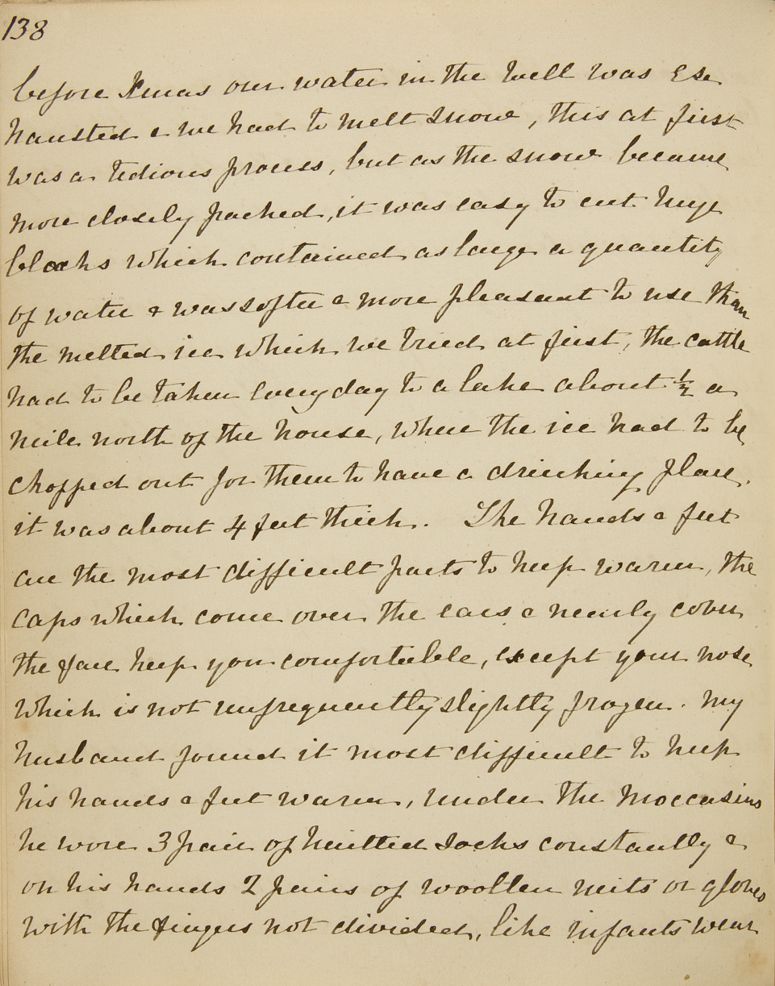 138
before Xmas our water in the well was Exe
hausted & we had to melt snow, this at first
was a tedious process, but as the snow became
more closely packed, it was easy to cut huge
blocks which contained as large a quantity
of water & was softer & more pleasant to use than
the melted ice which we tried at first, the cattle
had to be taken every day to a lake about ½ a
mile north of the house, where the ice had to be
chopped out for them to have a drinking place,
it was about 4 feet thick. The hands & feet
are the most difficult parts to keep warm, the
caps which come over the ears & nearly cover
the face keep you comfortable, except your nose
which is not unfrequently slightly frozen. My
husband found it most difficult to keep
his hands & feet warm, under the moccasins
he wore 3 pair of knitted socks constantly &
on his hands 2 pairs of woollen mits or gloves
with the fingers not divided, like infants wear